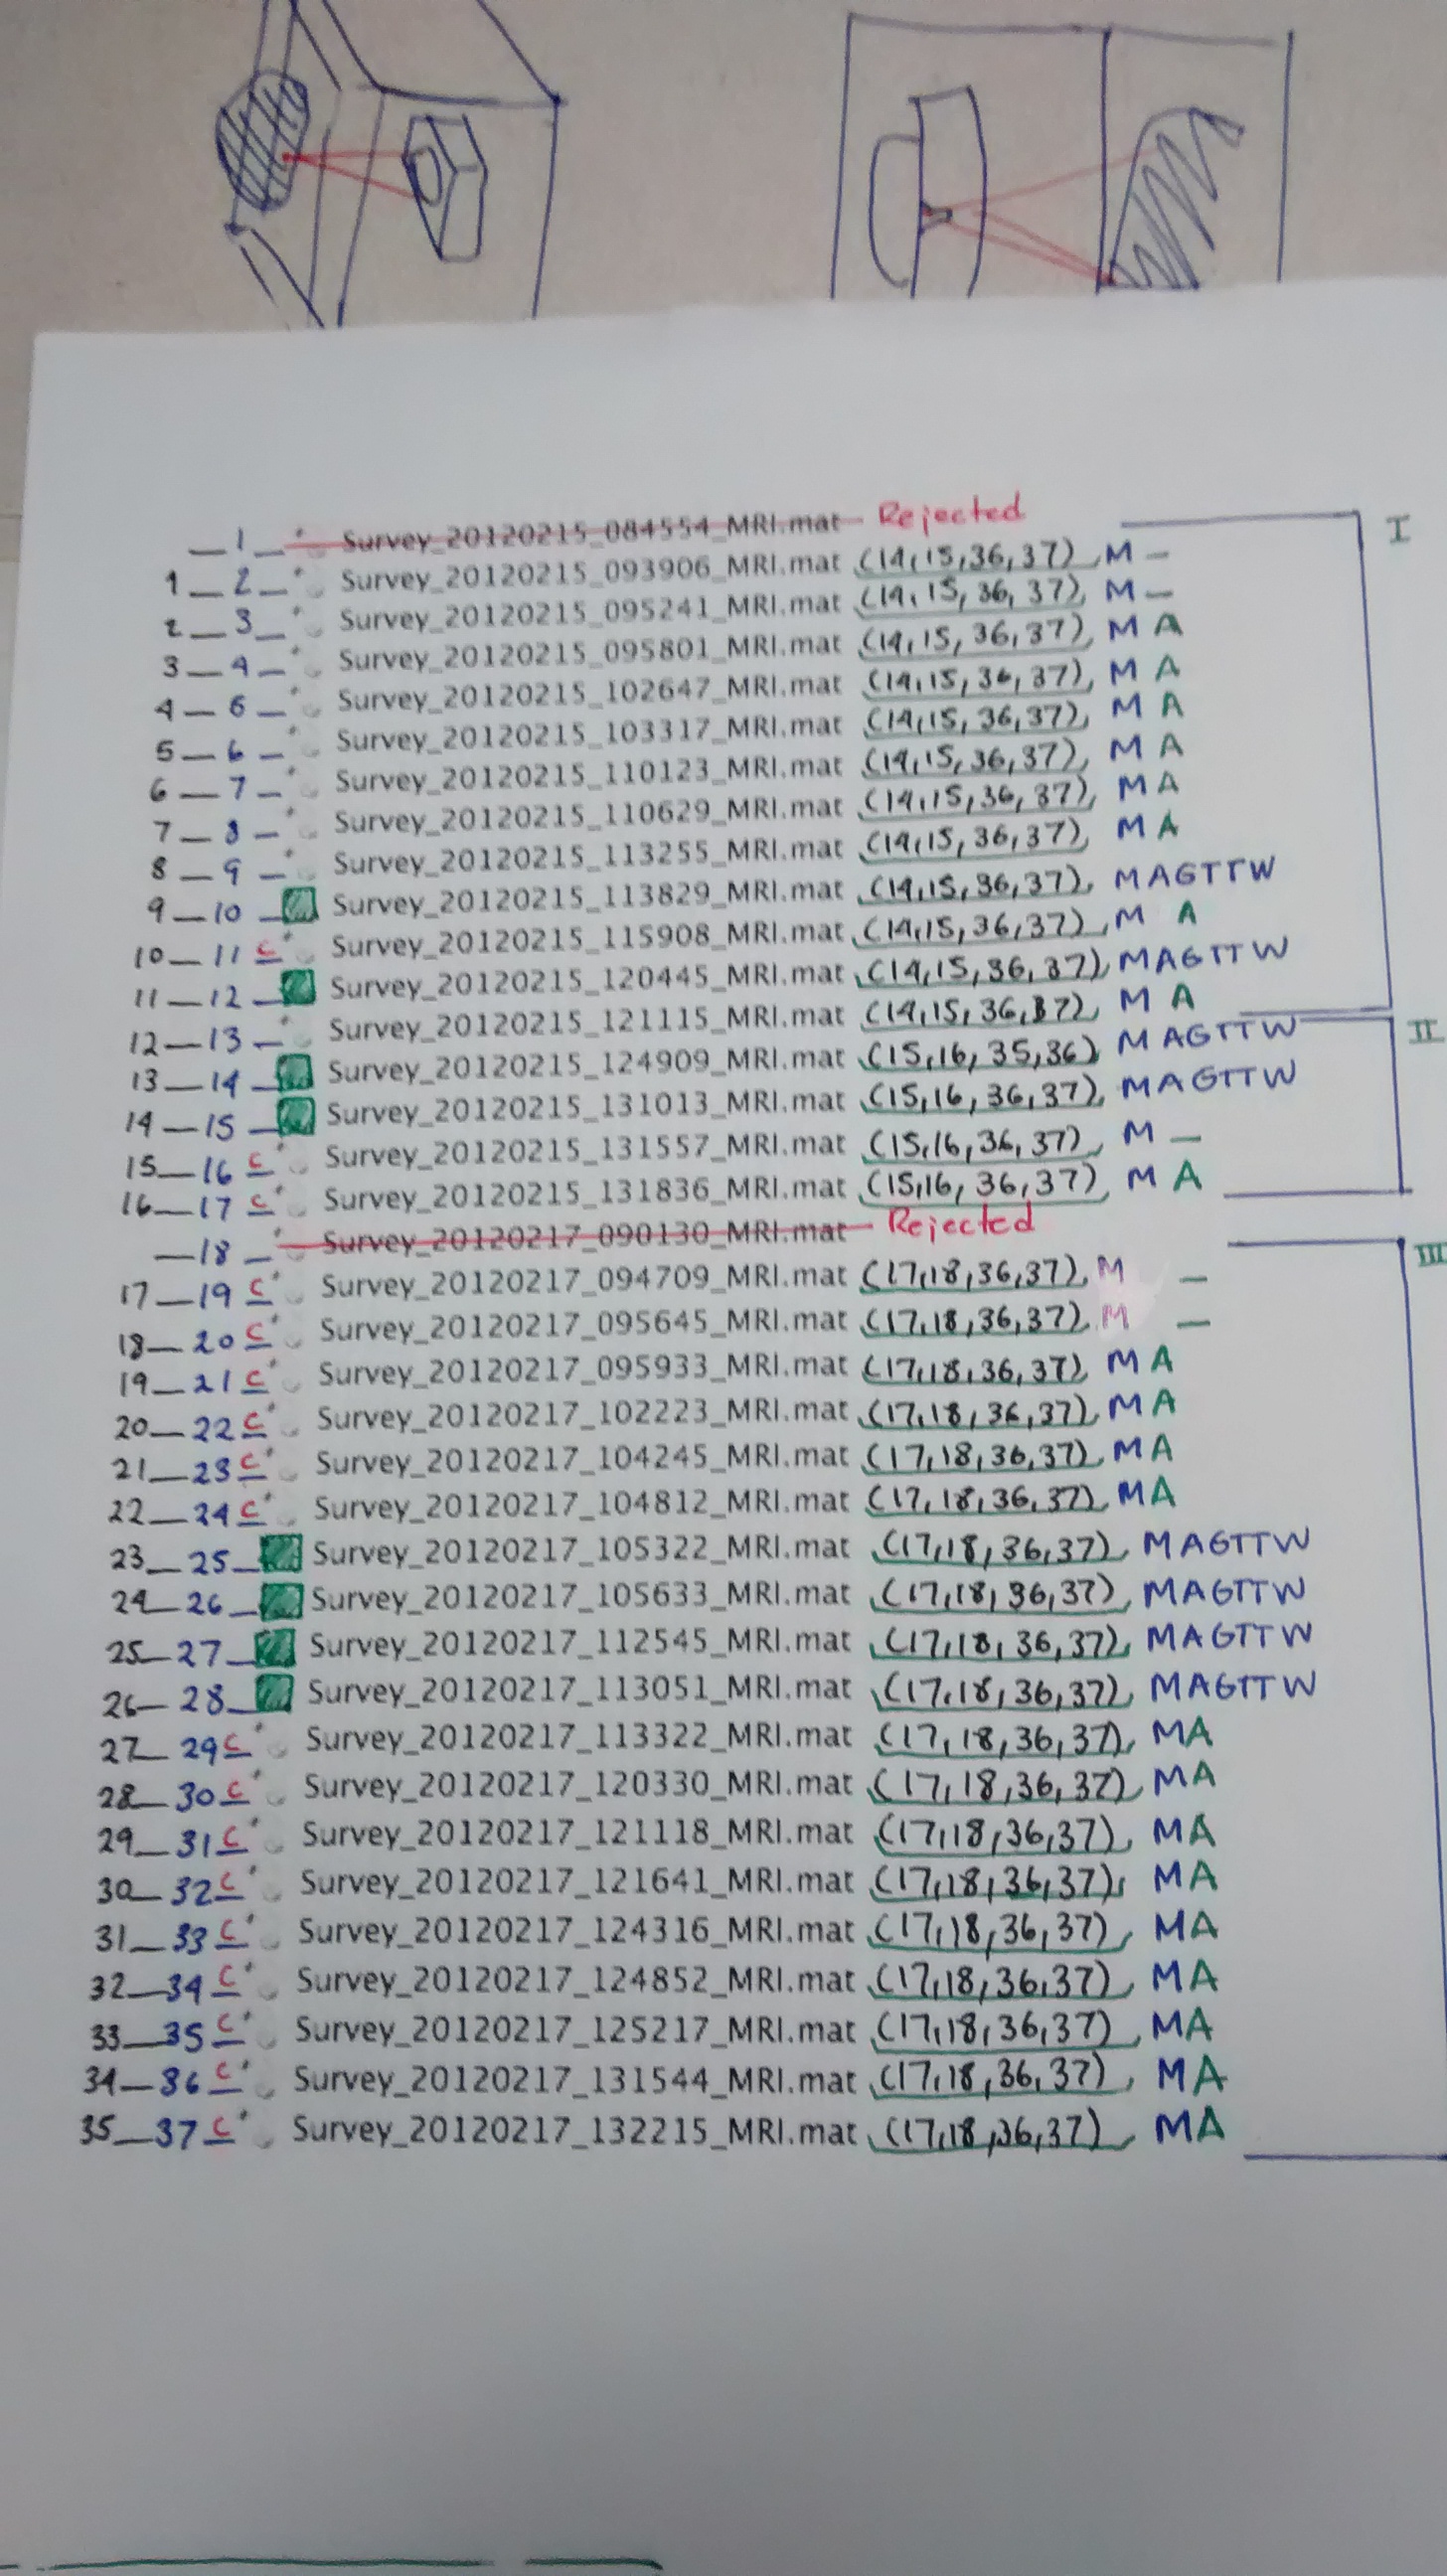 1 Survey_20120215_084554_MRI.mat Rejected I
1 — 2 — Survey_20120215_093906_MRI.mat (14,15,36,37), M —
2 — 3 — Survey_20120215_095241_MRI.mat (14,15,36,37), M —
3 — 4 — Survey_20120215_095801_MRI.mat (14,15,36,37), M A
4 — 6 — Survey_20120215_102647_MRI.mat (14,15,36,37), M A
5 — 6 — Survey_20120215_103317_MRI.mat (14,15,36,37), M A
6 — 7 — Survey_20120215_110123_MRI.mat (14,15,36,37), M A
7 — 8 — Survey_20120215_110629_MRI.mat (14,15,36,37), M A
8 — 9 — Survey_20120215_113255_MRI.mat (14,15,36,37), M A
9 — 10 — Survey_20120215_113829_MRI.mat (14,15,36,37), MAGTTW
10 — 11 C Survey_20120215_115908_MRI.mat (14,15,36,37), M A
11 — 12 — Survey_20120215_120445_MRI.mat (14,15,36,37), MAGTTW
12 — 13 — Survey_20120215_121115_MRI.mat (14,15,36,37), M A
13 — 14 — Survey_20120215_124909_MRI.mat (15,16,35,36), MAGTTW II
14 — 15 — Survey_20120215_131013_MRI.mat (15,16,36,37), MAGTTW
15 — 16 C Survey_20120215_131557_MRI.mat (15,16,36,37), M —
16 — 17 C Survey_20120215_131836_MRI.mat (15,16,36,37), M A
— 18 — Survey_20120217_090130_MRI.mat Rejected
17 — 19 C Survey_20120217_094709_MRI.mat (17,18,36,37), M — III
18 — 20 C Survey_20120217_095645_MRI.mat (17,18,36,37), M —
19 — 21 C Survey_20120217_095933_MRI.mat (17,18,36,37), M A
20 — 22 C Survey_20120217_102223_MRI.mat (17,18,36,37), M A
21 — 23 C Survey_20120217_104245_MRI.mat (17,18,36,37), M A
22 — 24 C Survey_20120217_104812_MRI.mat (17,18,36,37), MA
23 — 25 — Survey_20120217_105322_MRI.mat (17,18,36,37), MAGTTW
24 — 26 — Survey_20120217_105633_MRI.mat (17,18,36,37), MAGTTW
25 — 27 — Survey_20120217_112545_MRI.mat (17,18,36,37), MAGTTW
26 — 28 — Survey_20120217_113051_MRI.mat (17,18,36,37), MAGTTW
27 — 29 C Survey_20120217_113322_MRI.mat (17,18,36,37), MA
28 — 30 C Survey_20120217_120330_MRI.mat (17,18,36,37), MA
29 — 31 C Survey_20120217_121118_MRI.mat (17,18,36,37), MA
30 — 32 C Survey_20120217_121641_MRI.mat (17,18,36,37), MA
31 — 33 C Survey_20120217_124316_MRI.mat (17,18,36,37), MA
32 — 34 C Survey_20120217_124852_MRI.mat (17,18,36,37), MA
33 — 35 C Survey_20120217_125217_MRI.mat (17,18,36,37), MA
34 — 36 C Survey_20120217_131544_MRI.mat (17,18,36,37), MA
35 — 37 C Survey_20120217_132215_MRI.mat (17,18,36,37), MA